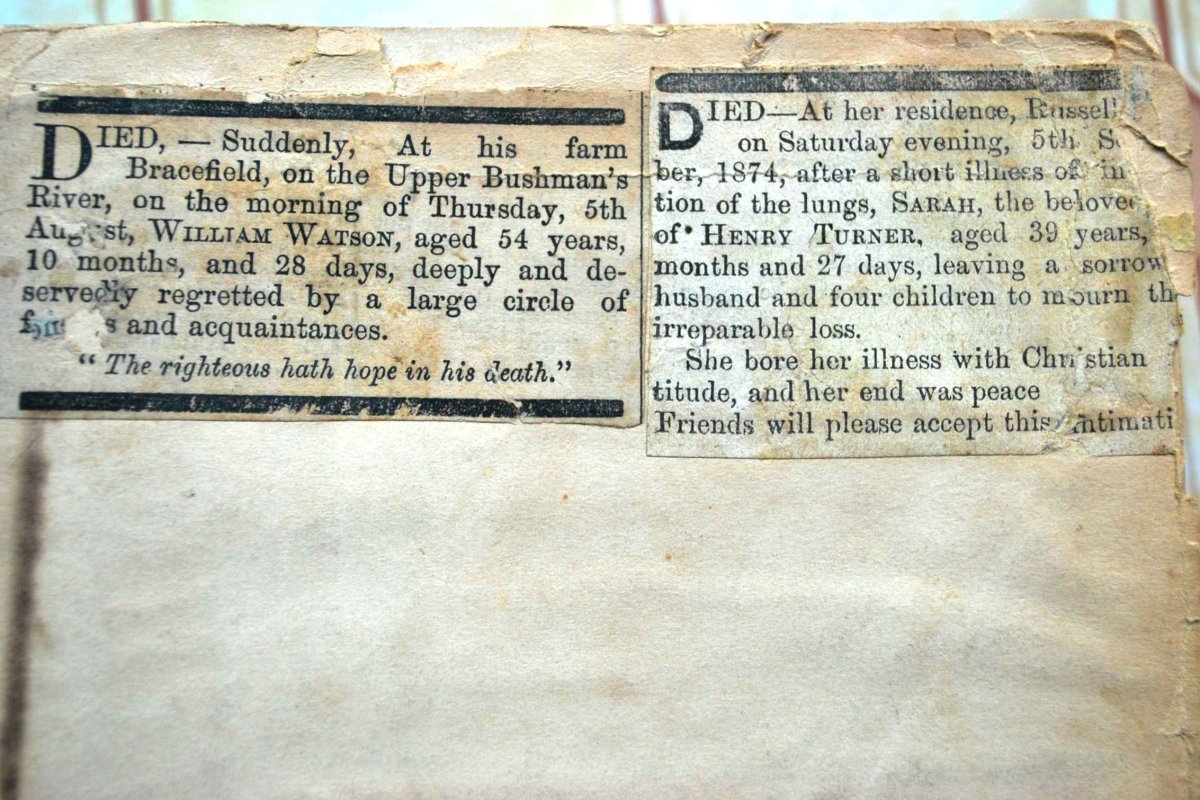 DIED, — Suddenly, At his farm
Bracefield, on the Upper Bushman's
River, on the morning of Thursday, 5th
August, WILLIAM WATSON, aged 54 years,
10 months, and 28 days, deeply and de-
servedly regretted by a large circle of
and acquaintances.
"The righteous hath hope in his death."
DIED—At her residence, Russell
on Saturday evening, 5th
ber, 1874, after a short illness of in
tion of the lungs, SARAH, the beloved
of HENRY TURNER, aged 39 years,
months and 27 days, leaving a sorrow
husband and four children to mourn th
irreparable loss.
She bore her illness with Christian
titude, and her end was peace
Friends will please accept this intimati